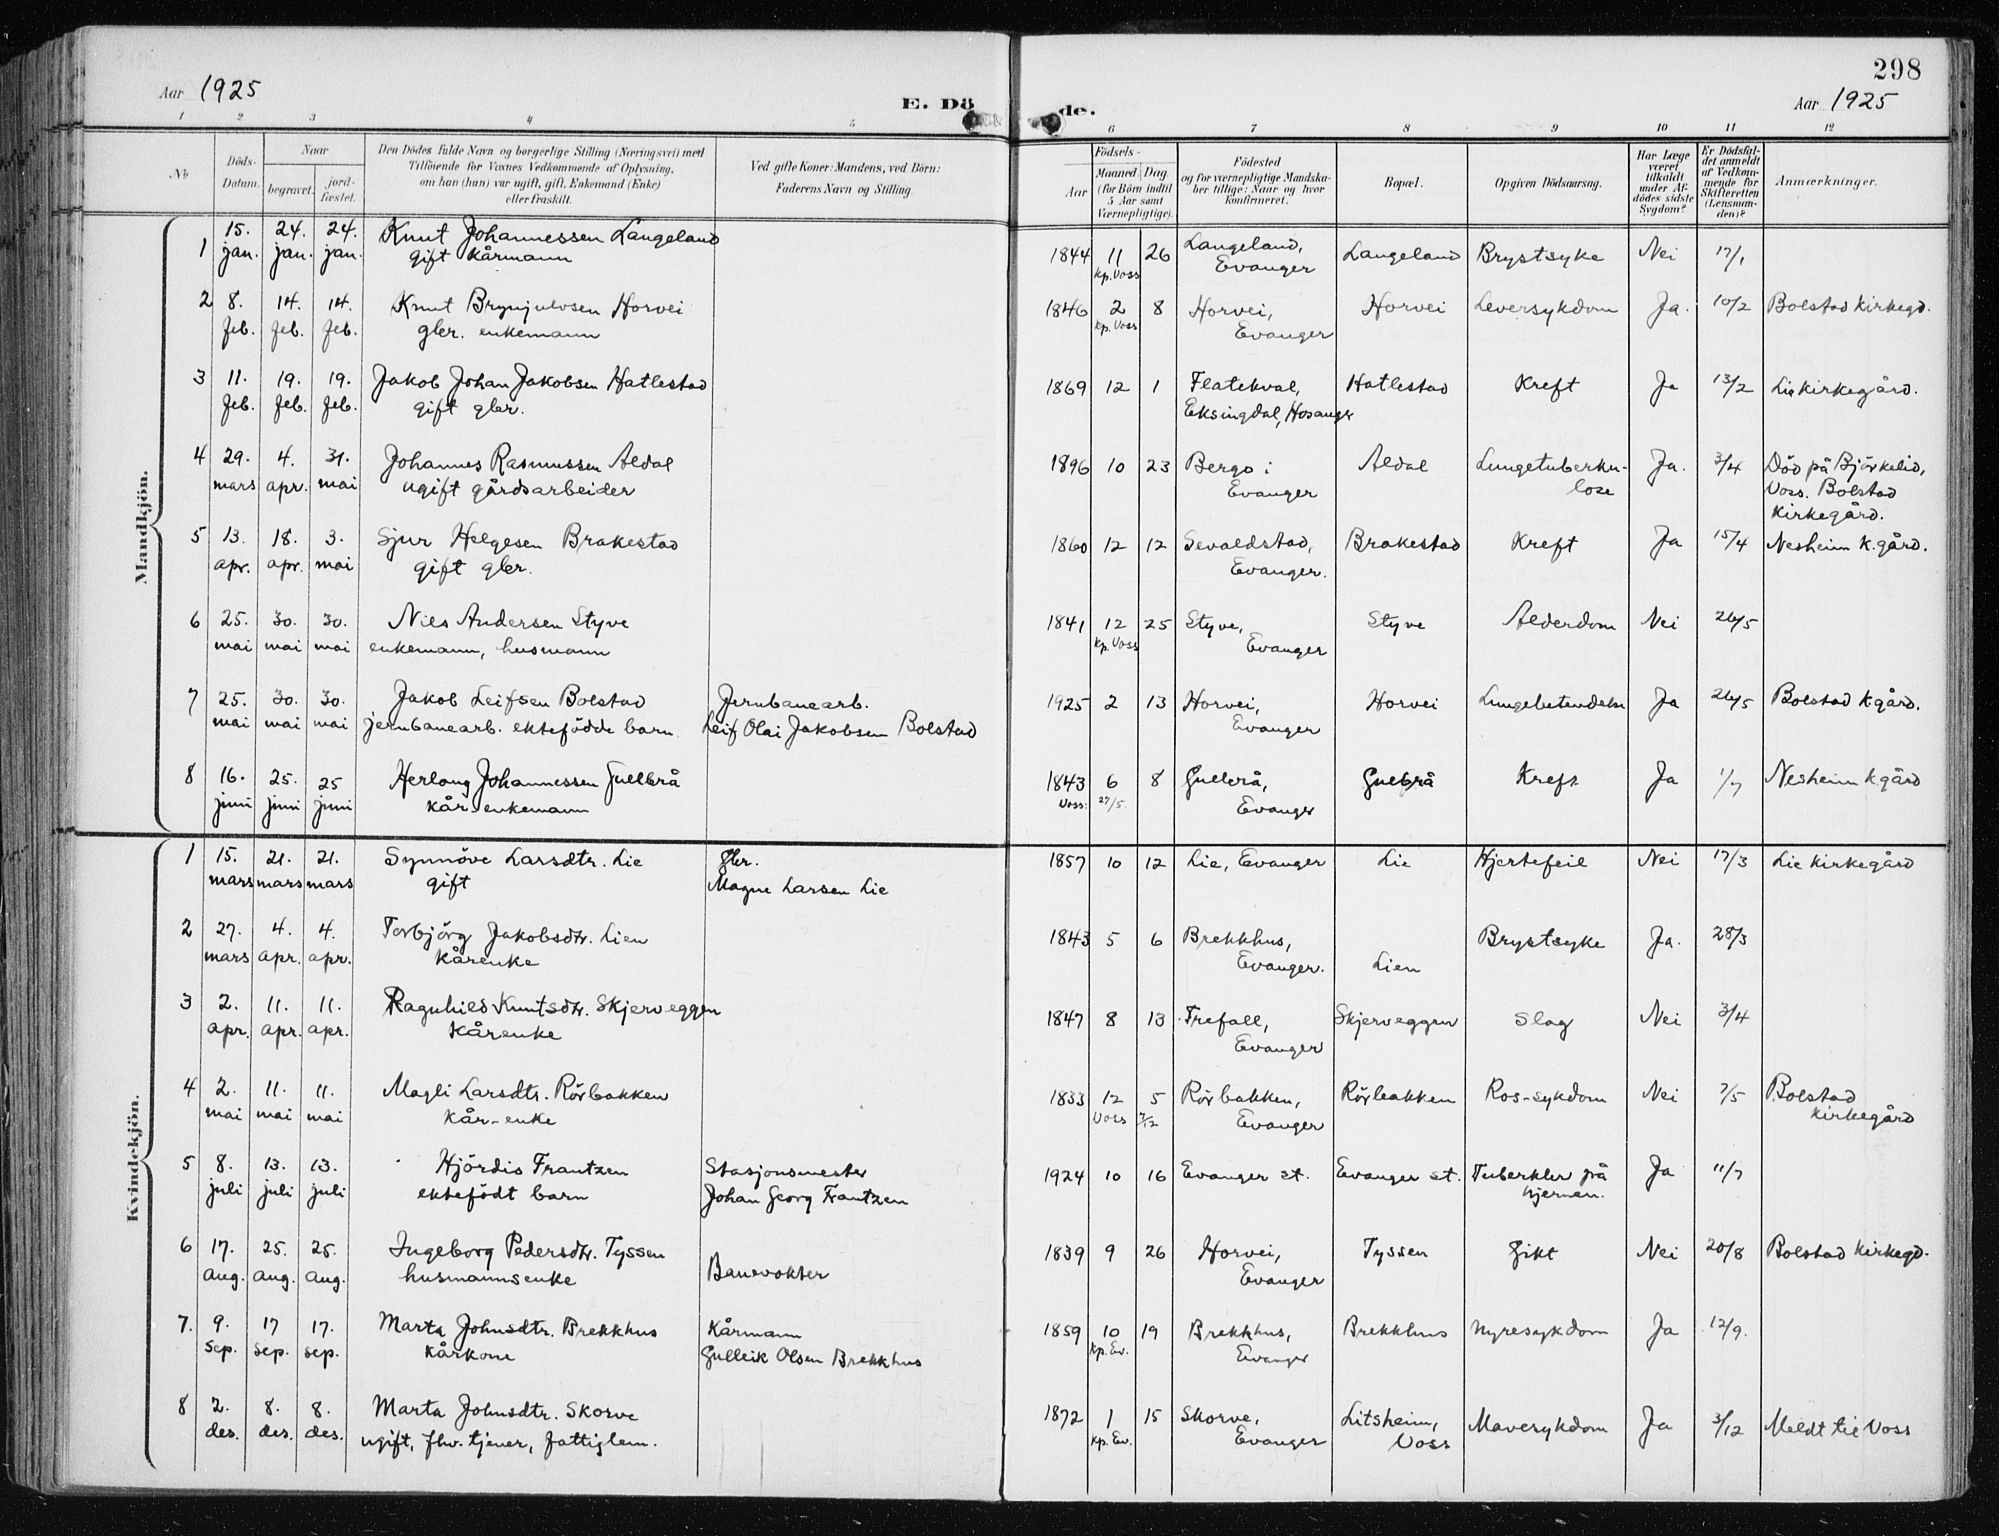 298
Aar 1925
E. Döde.
Aar 1925
1 2 3 4 5 6 7 8 9 10 11 12
No
Döds-Datum.
Naar
begravet.
jord-fæstet.
Den Dödes fulde Navn og borgerlige Stilling (Næringsvei) med
Tilföiende for Voxnes Vedkommende af Oplysning,
om han (hun) var ugift, gift, Enkemand (Enke)
eller fraskilt.
Ved gifte Koner: Mandens, ved Börn:
Faderens Navn og Stilling.
Födsels-
Aar
Maaned Dag
(for Börn indtil
5 Aar samt
Værnepligtige).
Födested
og for værnepligtige Mandska-
ber tillige: Naar og hvor
konfirmeret.
Bopæl.
Opgiven Dödsaarsag.
Har Læge
været
tilkaldt
under Af-
dödes sidste
Sygdom?
Er Dödsfal-
det anmeldt
af Vedkom-
mende for
Skifteretten
(Lensman-
den)?
Anmærkninger.
Mandkjön.
1 15. 24. 24. Knut Johannessen Langeland 1844 11 26 Langeland, Langeland Brystsyke Nei 17/1
jan. jan. jan. gift kårmann kp. Voss Evanger
2 8. 14. 14. Knut Brynjulvsen Horvei 1846 2 8 Horvei, Horvei Leversykdom Ja. 10/2 Bolstad kirkegd.
feb. feb. feb. gbr. enkemann kp. Voss Evanger
3 11. 19. 19. Jakob Johan Jakobsen Hatlestad 1869 12 1 Flatekval, Hatlestad Kreft Ja 13/2 Lie kirkegård.
feb. feb. feb. gift gbr. Eksingdal, Hosanger
4 29. 4. 31. Johannes Rasmussen Aldal 1896 10 23 Bergo i Aldal Lungetuberku- Ja. 3/4 Död på Björkelid,
mars apr. mai ugift gårdsarbeider Evanger lose Voss. Bolstad
kirkegård.
5 13. 18. 3. Sjur Helgesen Brakestad 1860 12 12 Sevaldstad, Brakestad Kreft Ja 15/4 Nesheim k.gård.
apr. apr. mai gift gbr. Evanger.
6 25. 30. 30. Nils Andersen Styve 1841 12 25 Styve, Styve Alderdom Nei 26/5
mai mai mai enkemann, husmann kp. Voss Evanger
7 25. 30. 30. Jakob Leifsen Bolstad Jernbanearb. 1925 2 13 Horvei, Horvei Lungebetendelse Ja 26/5 Bolstad k.gård.
mai mai mai jernbanearb. ektefödde barn Leif Olai Jakobsen Bolstad Evanger
8 16. 25. 25 Herlaug Johannessen Gullbrå 1843 6 8 Gullbrå, Gulbrå Kreft Ja 1/7 Nesheim k.gård
juni juni juni kår-enkemann Voss: 27/5. Evanger
Kvindekjön.
1 15. 21. 21. Synnöve Larsdtr. Lie gbr. 1857 10 12 Lie, Evanger Lie Hjertefeil Nei 17/3 Lie kirkegård
mars mars mars gift Magne Larsen Lie
2 27. 4. 4. Torbjörg Jakobsdtr. Lien 1843 5 6 Brekkhus, Brystsyke Ja. 28/3
mars apr. apr. kårenke Evanger. Lien
3 2. 11. 11. Ragnhild Knutsdtr. Skjerveggen 1847 8 13 Trefall, Skjerveggen Slag Nei 3/4
apr. apr. apr. kårenke Evanger
4 2. 11. 11. Magli Larsdtr. Rörbakken 1833 12 5 Rörbakken, Rörbakken Ros-sykdom Nei 7/5 Bolstad
mai mai mai kår-enke Voss 7/12 Evanger kirkegård
5 8. 13. 13. Hjördis Frantzen Stasjonsmester 1924 10 16 Evanger st. Evanger st. Tuberkler på Ja 11/7
juli juli juli ektefödt barn Johan Georg Frantzen hjernen.
6 17. 25. 25. Ingeborg Pedersdtr. Tyssen 1839 9 26 Horvei, Tyssen Gikt Nei 20/8 Bolstad kirkegd.
aug. aug. aug. husmannsenke Banevokter Evanger
7. 9. 17 17. Marta Johnsdtr. Brekkhus Kårmann 1859 10 19 Brekkhus, Brekkhus Nyresykdom Ja 12/9.
sep. sep. sep. kårkone Gulleik Olsen Brekkhus kp. Ev. Evanger
8 2. 8. 8. Marta Johnsdtr. Skorve 1872 1 15 Skorve, Litsheim, Mavesykdom Ja 3/12 Meldt til Voss
des. des. des. ugift, fhv. tjener, fattiglem. kp. Ev. Evanger Voss